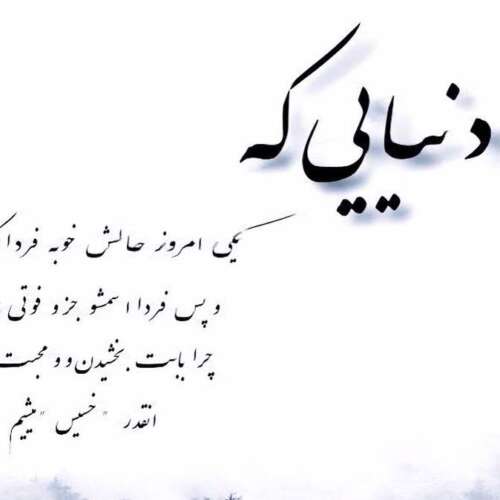 دنیایی که
یکی امروز حالش خوبه فردا
و پس فردا اسمشو جزو فوتی
چرا بابت بخشیدن و و محبت
انقدر "خسیس" میشیم